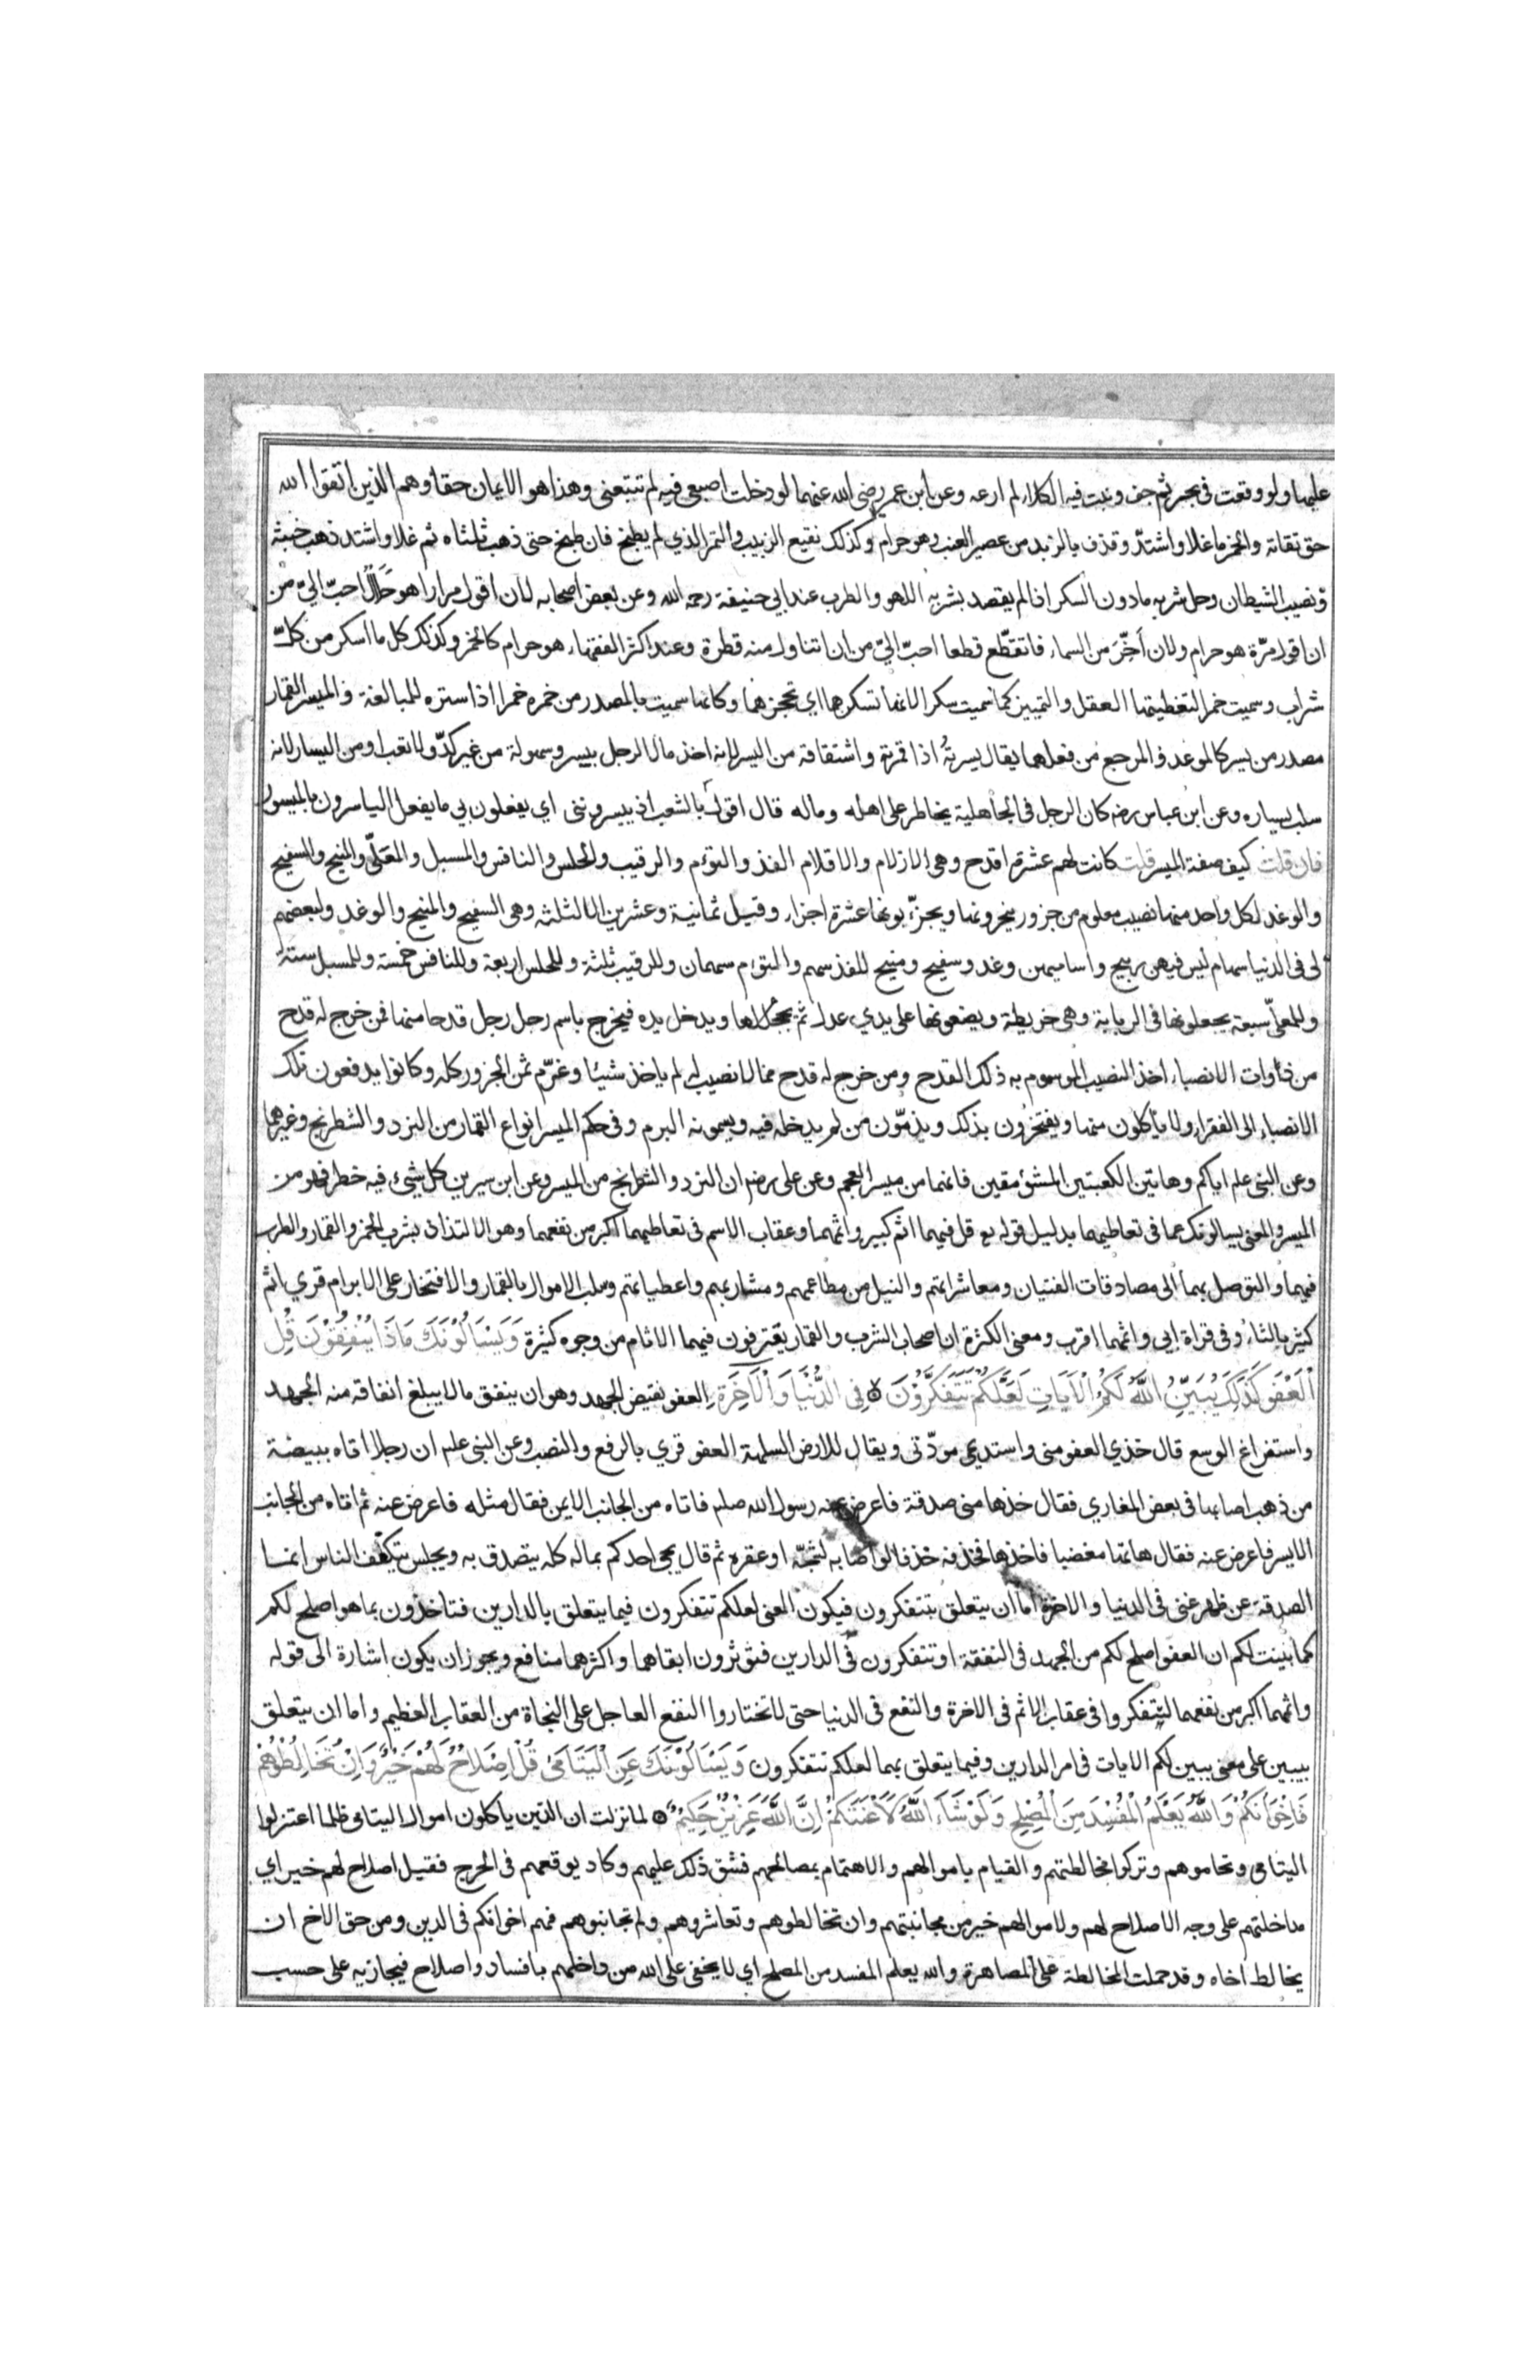 عليها ولو وقعت في بحر ثم جف ونبت فيه الكلاء لم ارعه وعن ابن عمر رضي الله عنهما لو دخلت اصبعي فيه لم تتبعني وهذا هو الايمان حقا وهم الذين اتقوا الله
حق تقاته والخمر ما غلا واشتدّ وقذف بالزبد من عصير العنب وهو حرام وكذلك نقيع الزبيب والتمر الذي لم يطبخ فان طبخ حتى ذهب ثلثاه ثم غلا واشتد ذهب خبثه
ونصيب الشيطان وحل شربه ما دون السكر اذا لم يقصد بشربه اللهو والطرب عند ابي حنيفة رحمه الله وعن بعض اصحابه لان اقول مرارا هو حَلال احبّ اليّ من
ان اقول مرّة هو حرام ولان أخِّرَ من السماء فاتقطّع قطعا احبّ اليّ من ان اتناول منه قطرة وعند اكثر الفقهاء هو حرام كالخمر وكذلك كل ما اسكر من كلّ
شراب وسميت خمرا لتغطيتها العقل والتمييز كما سميت سكرا لانها تسكرهما اي تحجزهما وكانها سميت بالمصدر من خمره خمرا اذا ستره للمبالغة والميسر القمار
مصدر من يسر كالموعد والمرجع من فعلهما يقال يسرتُه اذا قمرته واشتقاقه من اليسر لانه اخذ مال الرجل بيسر وسهولة من غير كدّ ولا تعب او من اليسار لانه
سلب يساره وعن ابن عباس رضه كان الرجل في الجاهلية يخاطر على اهله وماله قال اقول بالشعب اذ ييسرونني اي يفعلون بي ما يفعل الياسرون بالميسور
فان قلت كيف صفة الميسر قلت كانت لهم عشرة اقدح وهي الازلام والاقلام الفذ والتوءم والرقيب والحلس والنافس والمسبل والمعَلّى والمنيح والسفيح
والوغد لكل واحد منها نصيب معلوم من جزور ينحرونها ويجزّءونها عشرة اجزاء وقيل ثمانية وعشرين الا لثلثه وهي السفيح والمنيح والوغد ولبعضهم
لي في الدنيا سهام ليس فيهن ربيح واساميهن وغد وسفيح ومنيح للفذ سهم والتوءم سهمان وللرقيب ثلثة وللحلس اربعة وللنافس خمسة وللمسبل ستة
وللمعلّى سبعة يجعلونها في الربابة وهي خريطة ويضعونها على يدي عدل ثم يجلجلها ويدخل يده فيخرج باسم رجل رجل قدحا منها فمن خرج له قدح
من ذوات الانصباء اخذ النصيب الموسوم به ذلك القدح ومن خرج له قدح مما لا نصيب له لم ياخذ شيئا وغرّم ثمن الجزور كله وكانوا يدفعون تلك
الانصباء الى الفقراء ولا يأكلون منها ويفتخرون بذلك ويذمّون من لم يدخله فيه ويسمونه البرم وفي حكم الميسر انواع القمار من النرد والشطرنج وغيرهما
وعن النبي علم اياكم وهاتين الكعبتين المشئومقين فانهما من ميسر العجم وعن علي رضه ان النرد والشطرنج من الميسر وعن ابن سيرين كل شيء فيه خطر فهو من
الميسر والمعنى يسالونك عما في تعاطيهما بدليل قوله تع قل فيهما اثم كبير واثمهما وعقاب الاسم في تعاطيهما اكبر من نفعهما وهو الالتذاذ بشرب الخمر والقمار والطرب
فيهما والتوصل بهما الى مصادقات الفتيان ومعاشراتهم والنيل من مطاعمهم ومشاربهم واعطياتهم وسلب الاموال بالقمار والافتخار على الابرام قري اثم
كثير بالثاء وفي قراة ابي واثمهما اقرب ومعنى الكثرة ان اصحاب الشرب والقمار يقترفون فيهما الاثام من وجوه كثيرة وَيَسْالُونَكَ مَاذَا يُنْفِقُوْنَ قُلِ
الْعَفْوَ كَذَلِكَ يُبَيِّنُ اللَّهُ لَكُمُ الْآيَاتِ لَعَلَّكُمْ تَتَفَكَّرُوْنَ ه فِي الدُّنْيَا وَالْآخِرَةِ العفو نقيض الجهد وهو ان ينفق مالا يبلغ انفاقه منه الجهد
واستفراغ الوسع قال خذي العفو مني واستديمي مودّتي ويقال للارض السهلة العفو قري بالرفع والنصب وعن النبي علم ان رجلا اتاه ببيضة
من ذهب اصابها في بعض المغازي فقال خذها مني صدقة فاعرض عنه رسول الله صلم فاتاه من الجانب الايمن فقال مثله فاعرض عنه ثم اتاه من الجانب
الايسر فاعرض عنه فقال هاتها مغضبا فاخذها فخذفه خذفا لو اصابه لشجّه او عقره ثم قال يجي احدكم بماله كله يتصدق به ويجلس يتكفف الناس انما
الصدقة عن ظهر غنى في الدنيا والاخرة اما ان يتعلق بتتفكرون فيكون المعنى لعلكم تتفكرون فيما يتعلق بالدارين فتاخذون بما هو اصلح لكم
كما بينت لكم ان العفو اصلح لكم من الجهد في النفقة او تتفكرون في الدارين فتؤثرون ابقاهما واكثرهما منافع ويجوز ان يكون اشارة الى قوله
واثمهما اكبر من نفعهما لتتفكروا في عقاب الاثم في الاخرة والنفع في الدنيا حتى لا تختاروا النفع العاجل على النجاة من العقاب العظيم واما ان يتعلق
بيبين على معنى يبين لكم الايات في امر الدارين وفيما يتعلق بهما لعلكم تتفكرون وَيَسْالُوْنَكَ عَنِ الْيَتَامَى قُلْ اِصْلَاحٌ لَهُمْ خَيْرٌ وَاِنْ تُخَالِطُوْهُمْ
فَاِخْوَانُكُمْ وَاللَّهُ يَعْلَمُ الْمُفْسِدَ مِنَ الْمُصْلِحِ وَلَوْ شَاءَ اللَّهُ لَاَعْنَتَكُمْ اِنَّ اللَّهَ عَزِيْزٌ حَكِيْمٌ ه لما نزلت ان الذين ياكلون اموال اليتامى ظلما اعتزلوا
اليتامى وتحاموهم وتركوا مخالطتهم والقيام باموالهم والاهتمام بمصالحهم فشق ذلك عليهم وكاد يوقعهم في الحرج فقيل اصلاح لهم خير اي
مداخلتهم على وجه الاصلاح لهم ولاموالهم خير من مجانبتهم وان تخالطوهم وتعاشروهم ولم تجانبوهم فهم اخوانكم في الدين ومن حق الاخ ان
يخالط اخاه وقد حملت المخالطة على المصاهرة والله يعلم المفسد من المصلح اي لا يخفى على الله من داخلهم بافساد واصلاح فيجازيه على حسب